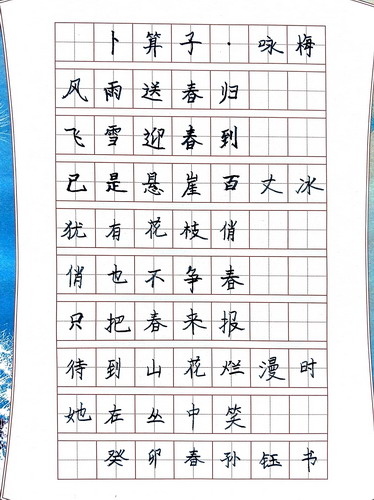 卜算子·咏梅
风雨送春归
飞雪迎春到
已是悬崖百丈冰
犹有花枝俏
俏也不争春
只把春来报
待到山花烂漫时
她在丛中笑
癸卯春孙钰书